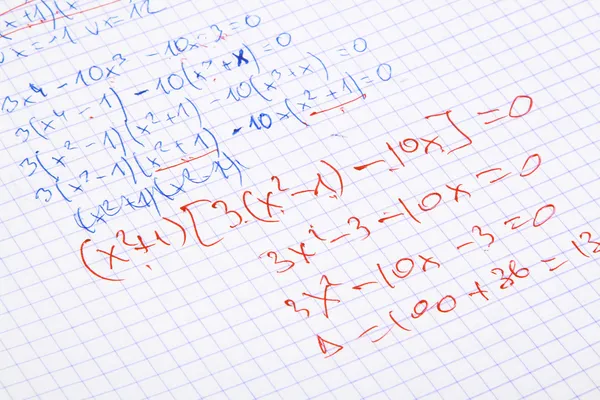 x+1)(x
x=-1 v x=12
3x⁴-10x³-10x-3=0
3(x⁴-1)-10(x³+x)=0
3(x²-1)(x²+1)-10(x³+x)=0
3(x²-1)(x²+1)-10x(x²+1)=0
(x²+1)(x²-1)
(x²+1)[3(x²-1)-10x]=0
3x²-3-10x=0
3x²-10x-3=0
Δ=100+36=13